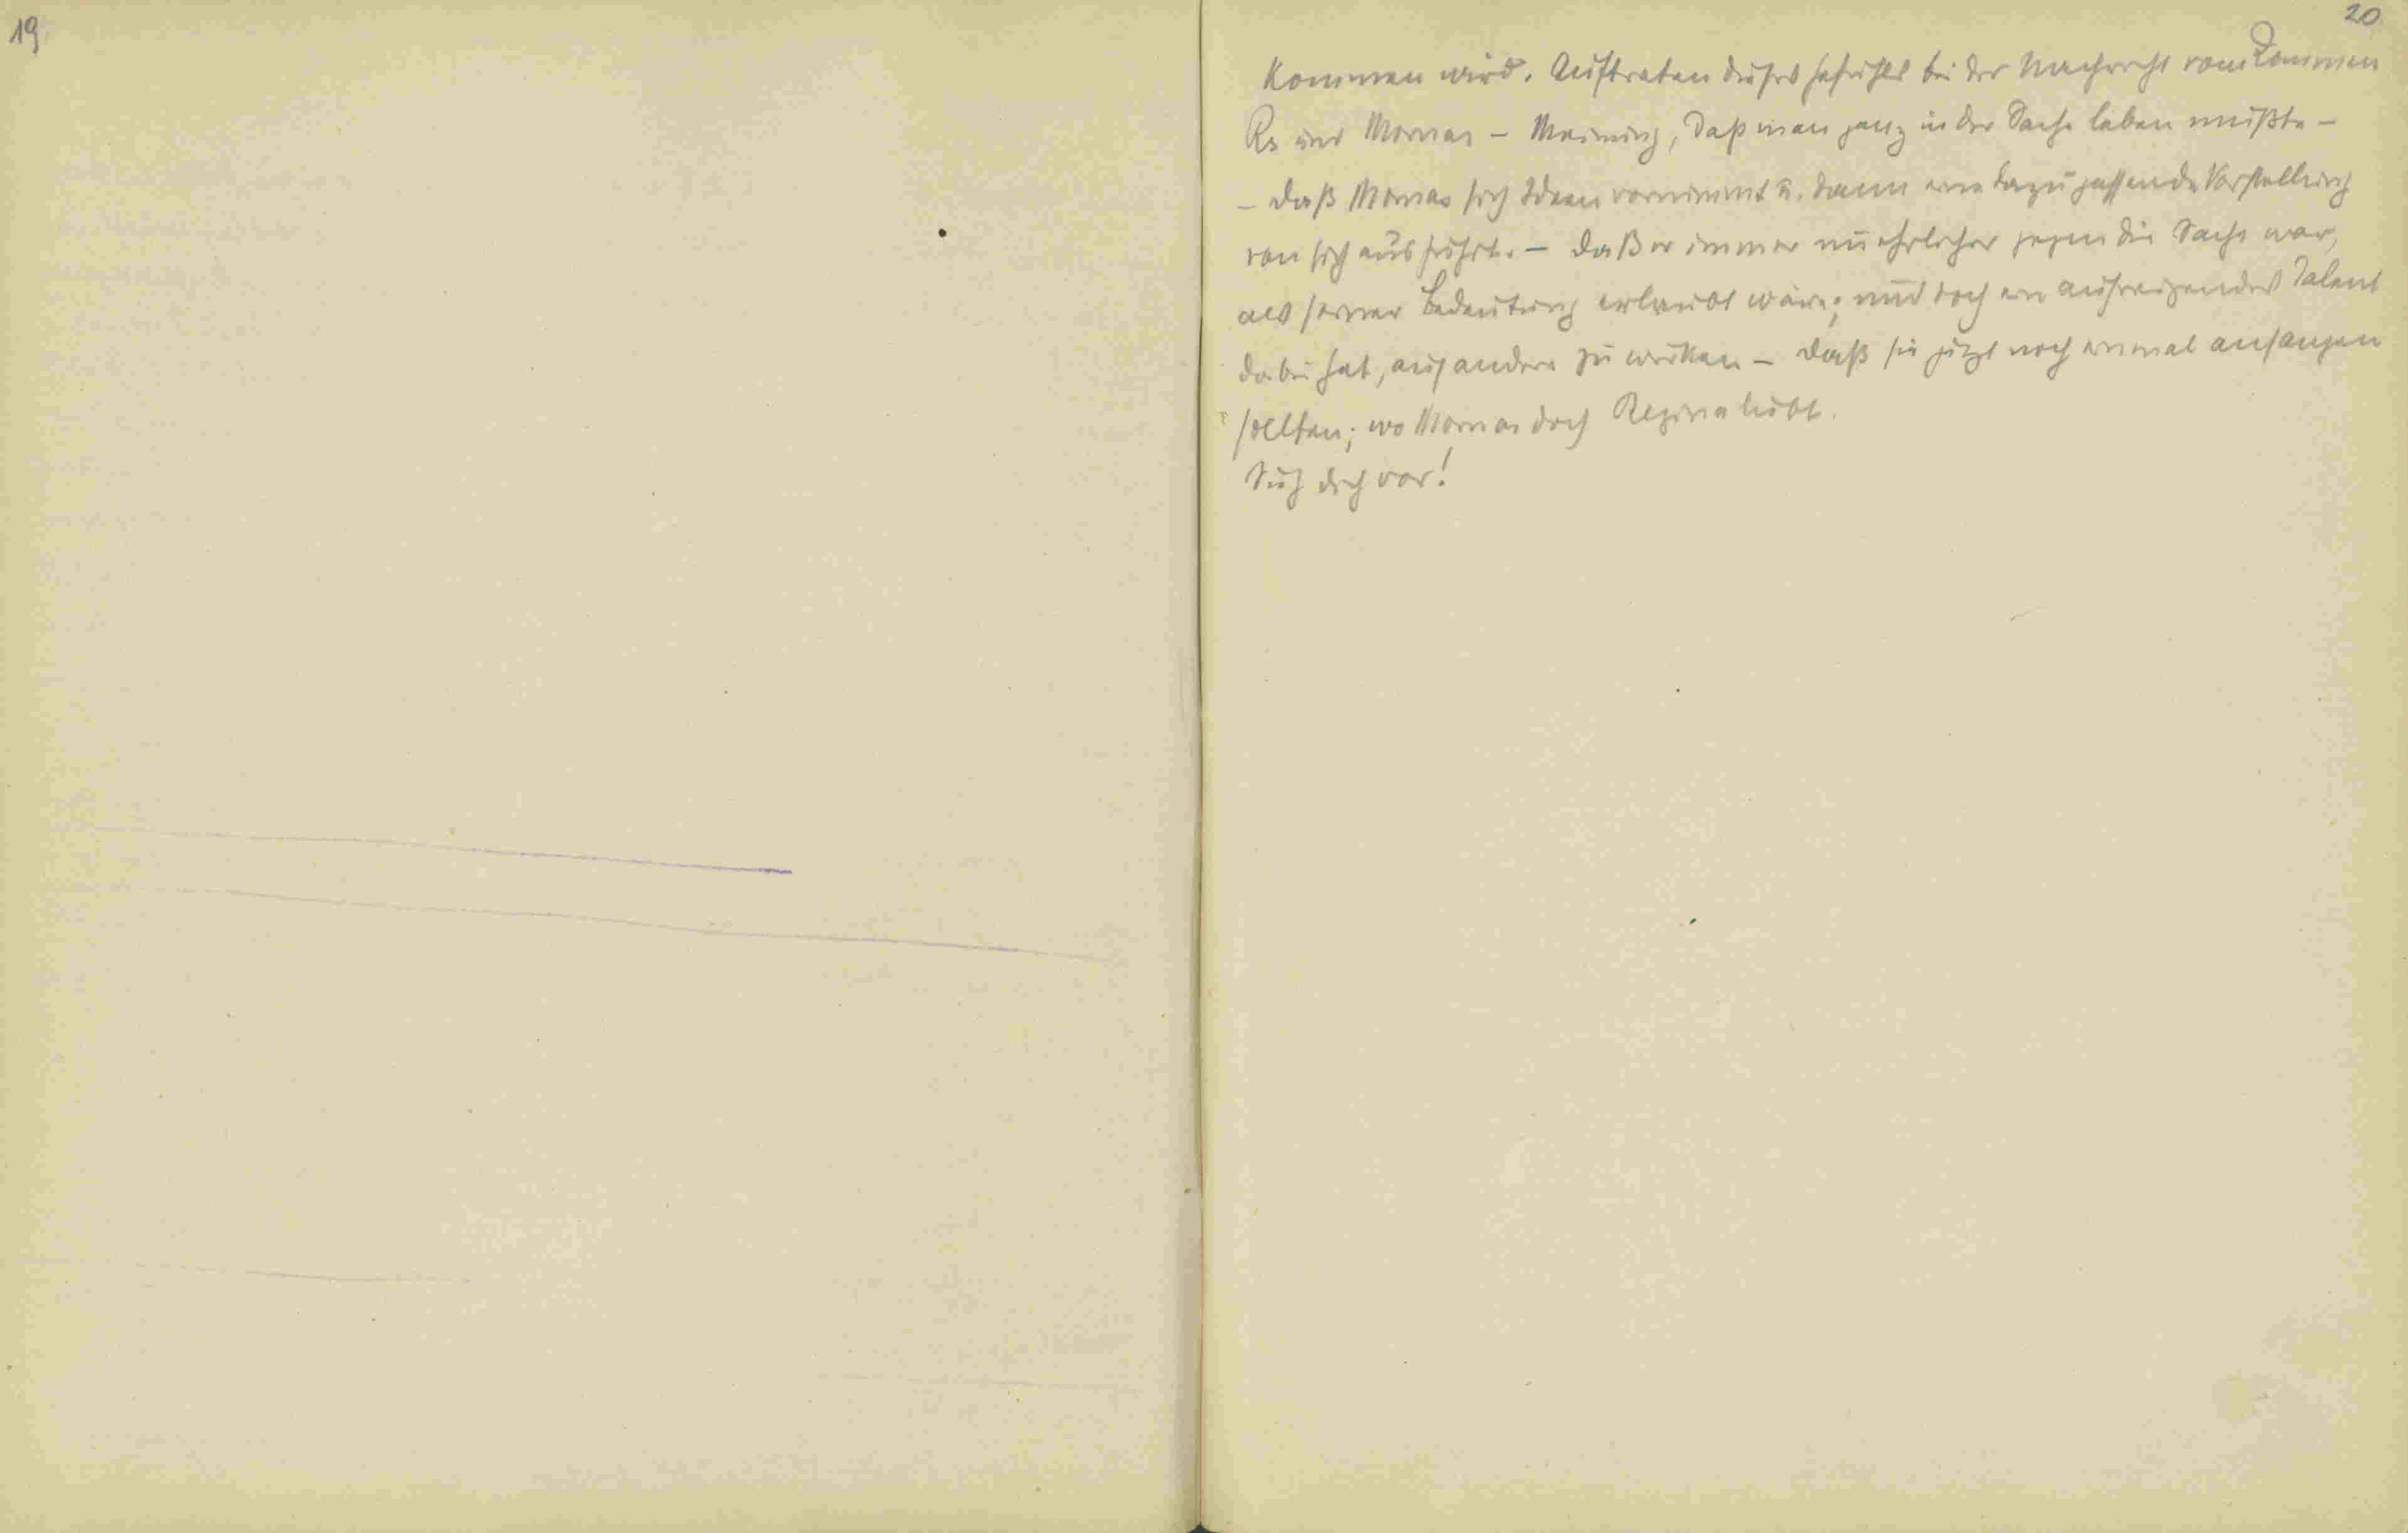 19
20
kommen wird. Auftreten dieses Gefühls bei der Nachricht vom Kommen
Rs und Mornas – Meinung, daß man ganz in der Sache leben müßte –
– daß Mornas sich Ideen vornimmt u. dann eine dazu passende Vorstellung
von sich ausführt. – daß er immer unehrlicher gegen die Sache war,
als seiner Bedeutung erlaubt wäre; und doch ein aufreizendes Talent
dabei hat, auf andere zu wirken – daß sie jetzt noch einmal anfangen
sollten; wo Mornas doch Regina liebt.
Sieh dich vor!